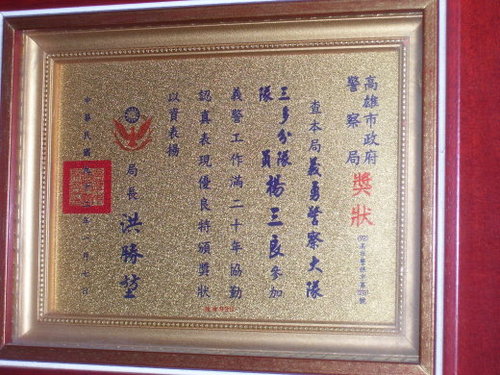 高雄市政府
警察局
獎狀
查本局義勇警察大隊
三多分隊
隊員楊三良參加
義警工作滿二十年協勤
認真表現優良特頒獎狀
以資表揚
局長 洪勝堃
中華民國